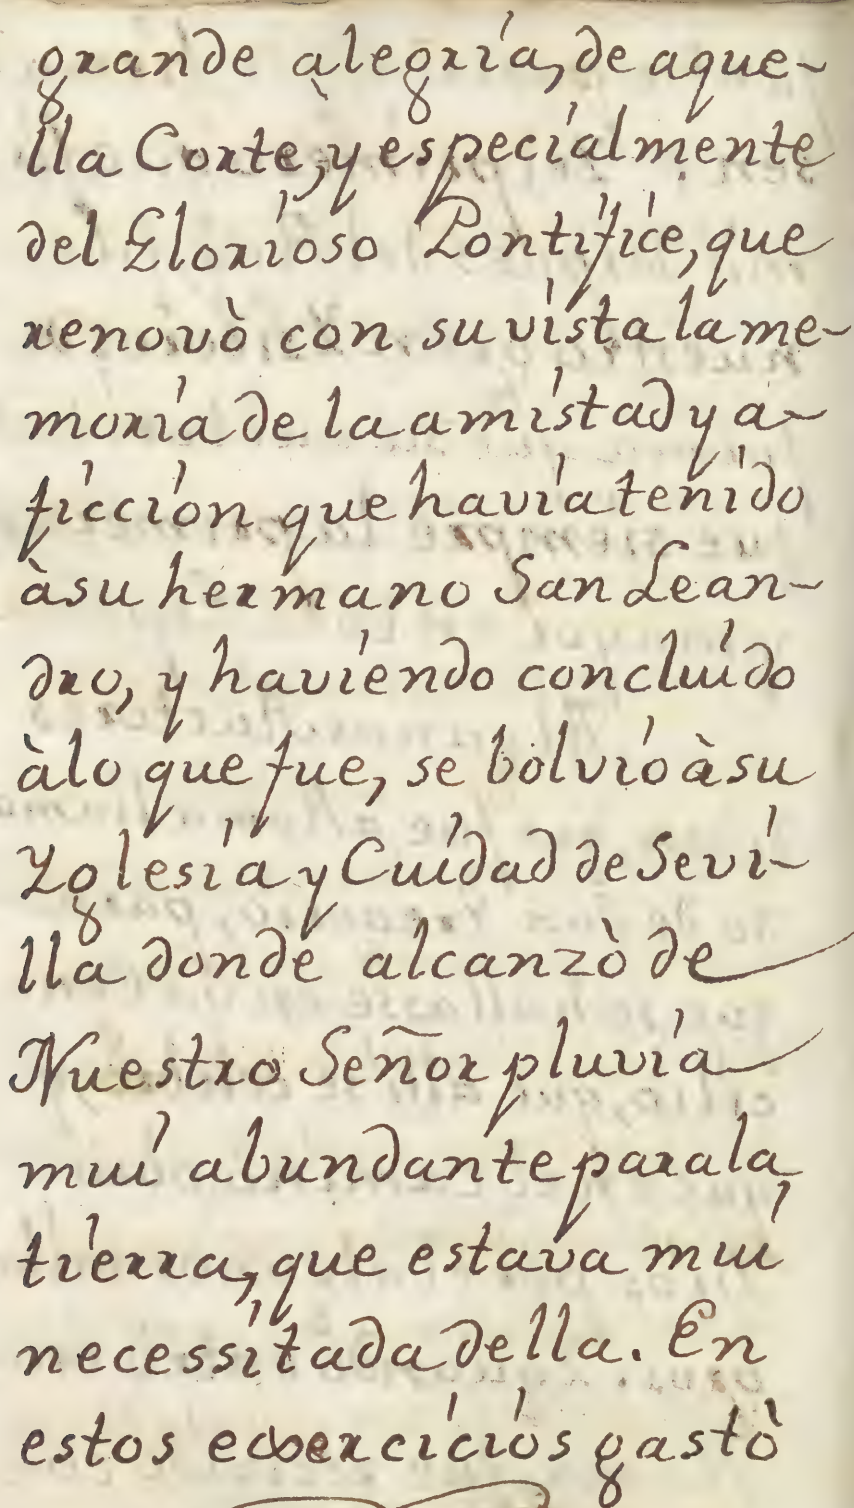 grande àlegría, de aque-
lla Corte, y especialmente
del Glorioso Pontífice, que
renovò con su vista la me-
moria de la amistad y a-
ficción que havia tenido
à su hermano San Lean-
dro, y haviendo concluido
à lo que fue, se bolvio à su
Yglesia y Cuidad de Sevi-
lla donde alcanzò de
Nuestro Señor pluvia
mui abundante para la
tierra, que estava mui
necessitada della. En
estos exercicios gastò